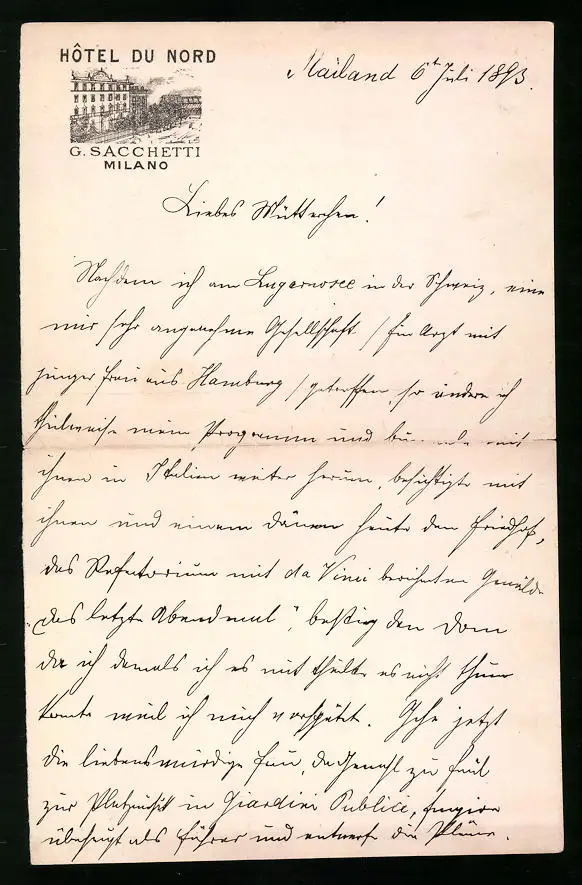 HÔTEL DU NORD
G. SACCHETTI
MILANO
Mailand 6t Juli 1893.
Liebes Mütterchen!
Nachdem ich am Luganosee in der Schweiz, eine
mir sehr angenehme Gesellschaft / Ein Arzt mit
junger Frau aus Hamburg / getroffen, so ändere ich
theilweise mein Programm und
ihnen in Italien weiter herum, besichtigte mit
ihnen und einem Dänen heute den Friedhof,
das Refectorium mit da Vinci berühmten Gemälde
"das letzte Abendmal", bestieg den Dom
da ich damals ich es mit theilte es nicht thun
konnte weil ich mich verspätet. Gehe jetzt
die liebenswürdige Frau, da Gemahl zu faul
zur Platzmusik in Giardini Publici, fungire
überhaupt als Führer und entwerfe die Pläne.